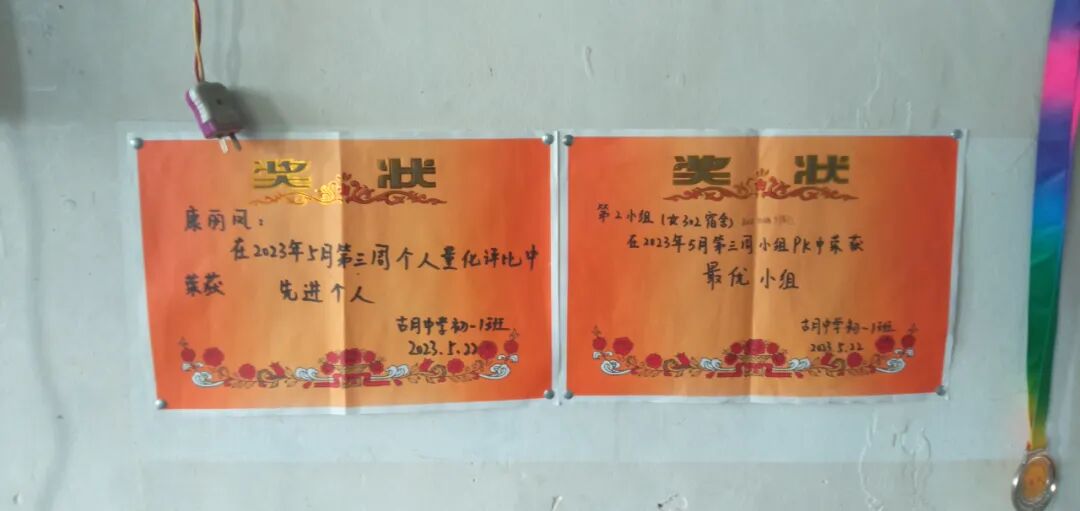 奖 状
康丽凤：
在2023年5月第三周个人量化评比中
荣获 先进个人
古月中学初一1班
2023.5.22
奖 状
第2小组（女302宿舍）
在2023年5月第三周小组PK中荣获
最优小组
古月中学初一1班
2023.5.22